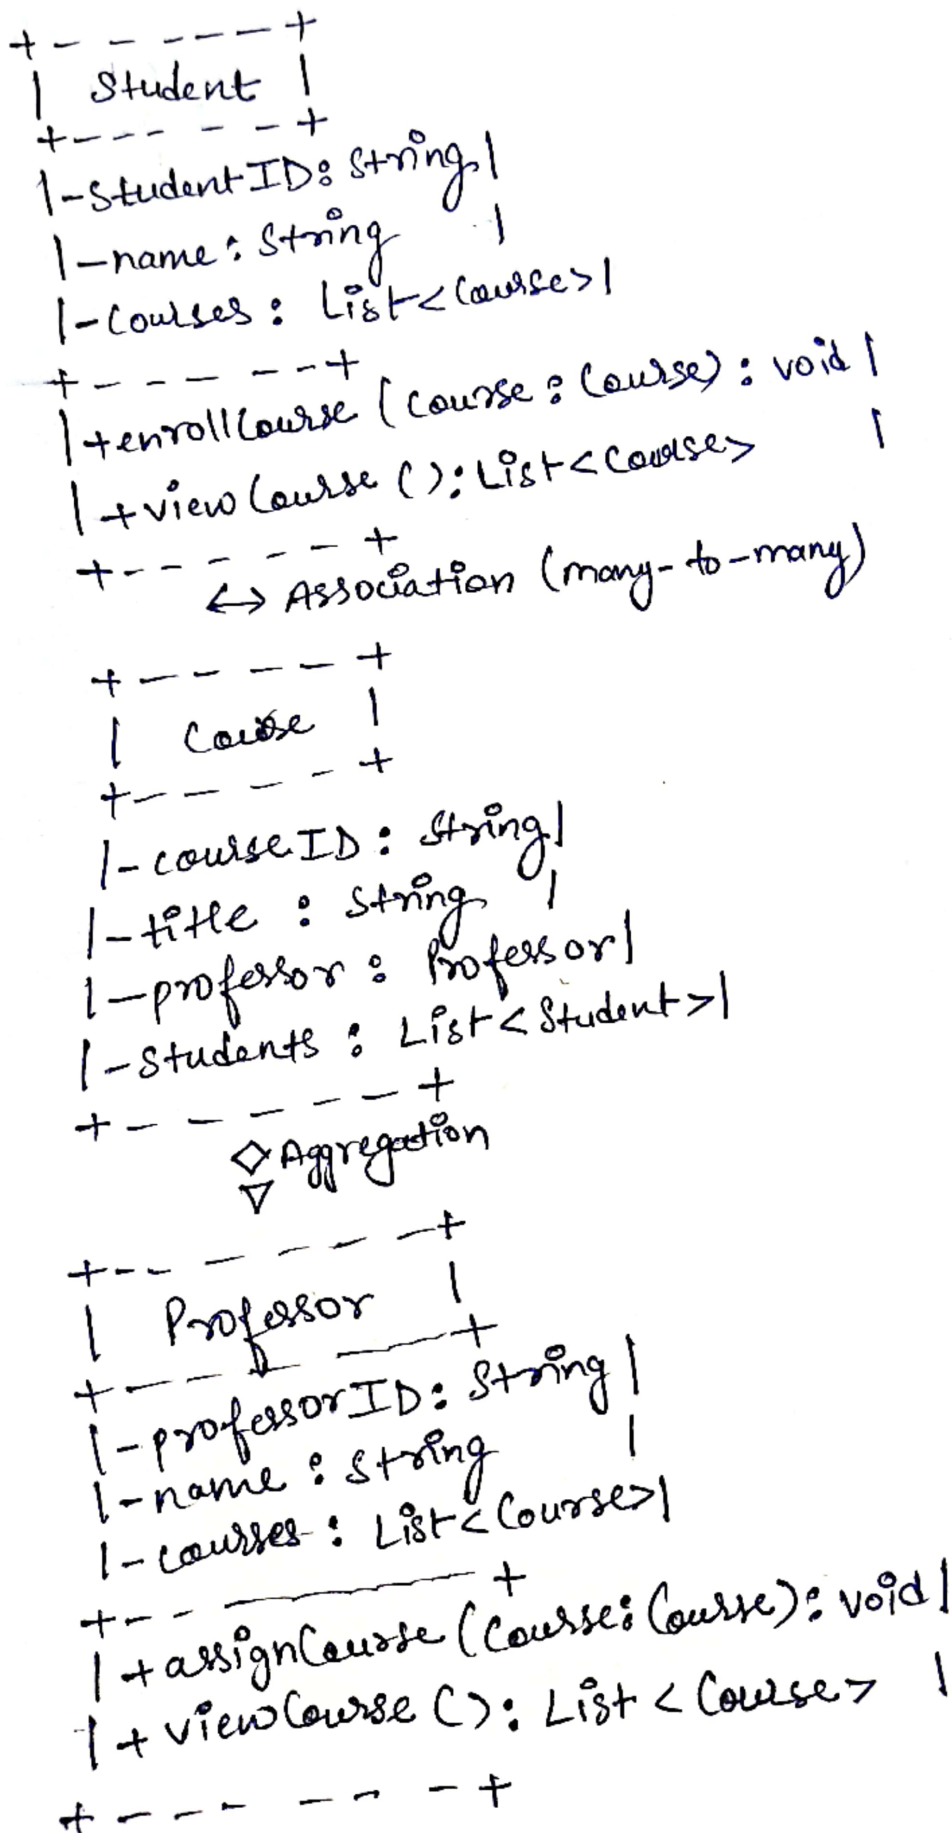 +- - ----+
| Student |
+--- - - -+
|-StudentID: String|
|-name: String |
|-Courses: List<Course>|
+- - - - --+
|+enrollCourse (Course: Course): void |
|+viewCourse (): List<Course> |
+-- - - - - +
↔ Association (many-to-many)
+- - - - - +
| Course |
+-- - - - - +
|-courseID: String|
|-title : String |
|-professor: Professor|
|-Students: List<Student>|
+- - - - - - - +
◇ Aggregation
▽
+-- - - - - -+
| Professor |
+--- - --+
|-professorID: String |
|-name: String |
|-courses: List<Course>|
+-- ---- +
|+assignCourse (Course: Course): void|
|+viewCourse (): List<Course> |
+ - - - - - - - +